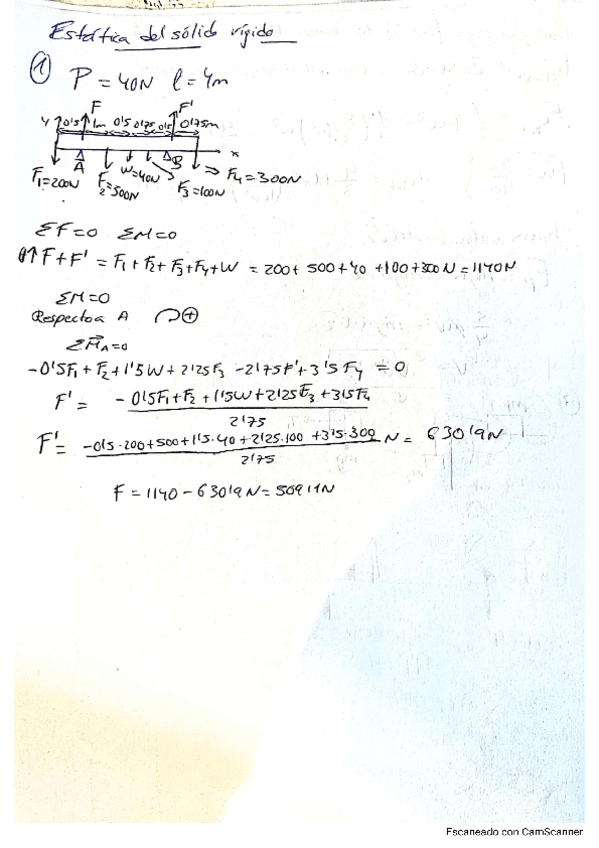 Estática del sólido rígido
① P = 40N l = 4m
F F'
y 0'5 1m 0'5 0'75 0'5 0'75m
A B x
F₁=200N F₂=500N W=40N F₃=100N F₄=300N
ΣF=0 ΣM=0
F+F' = F₁+F₂+F₃+F₄+W = 200+500+40+100+300N=1140N
ΣM=0
Respecto a A ⊕
ΣM⃗_A=0
-0'5F₁+F₂+1'5W+2'125F₃-2'75F'+3'5F₄=0
F' = -0'5F₁+F₂+1'5W+2'125F₃+3'5F₄
2'75
F' = -0'5·200+500+1'5·40+2'125·100+3'5·300 N = 630'9N
2'75
F = 1140-630'9N=509'1N
Escaneado con CamScanner